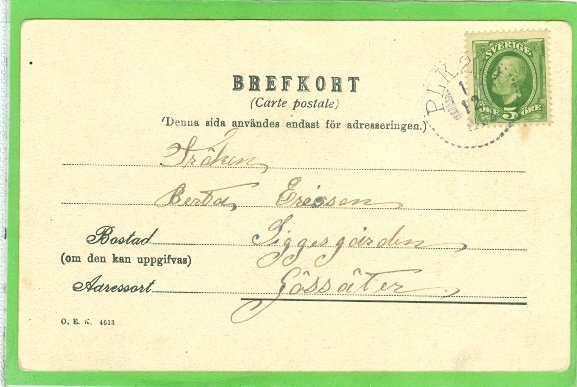 SVERIGE
5 ÖRE
PLK
BREFKORT
(Carte postale)
(Denna sida användes endast för adresseringen.)
Fröken
Berta Ericson
Bostad Siggesgården
(om den kan uppgifvas)
Adressort Gössäter
O. E. K. 4613